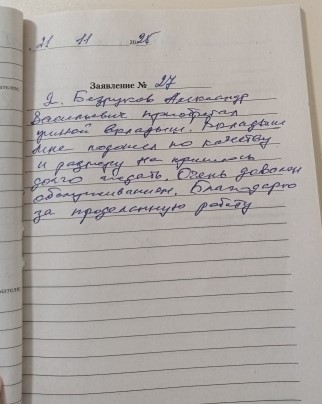 21 11 2025
Заявление № 27
Я. Безруков Александр
Васильевич приобретал
ушной вкладыш. Вкладыш
мне подошел по качеству
и размеру не пришлось
долго ждать. Очень доволен
обслуживанием. Благодарю
за проделанную работу